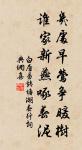 幾處早鶯爭暖樹
誰家新燕啄春泥
白居易錢塘湖春行